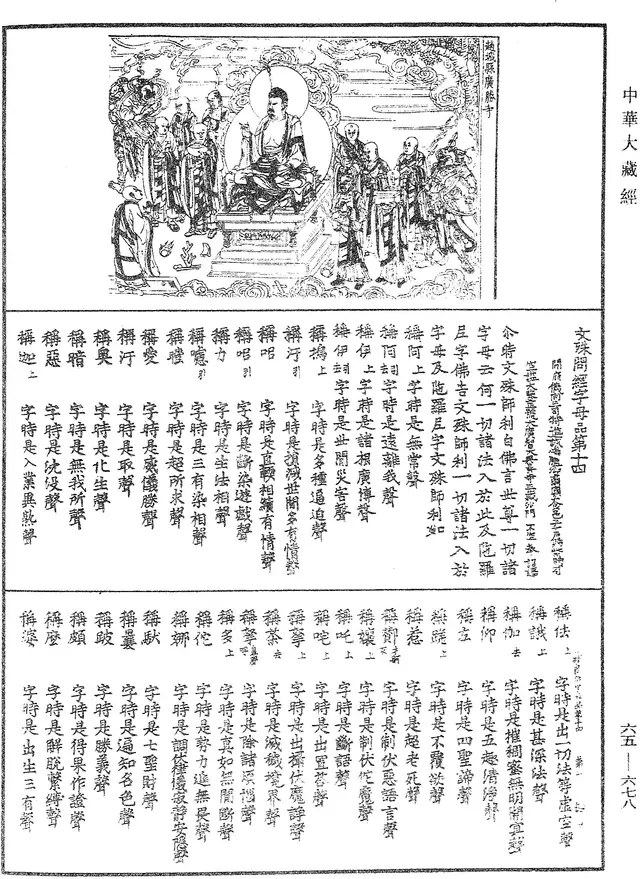 中華大藏經
趙城縣廣勝寺
文殊問經字母品第十四
尒時文殊師利白佛言世尊一切諸
字母云何一切諸法入於此及陁羅
尼字佛告文殊師利一切諸法入於
字母及陁羅尼字文殊師利如
稱阿上字時是無常聲
稱阿去引字時是遠離我聲
稱伊上字時是諸根廣博聲
稱伊去引字時是世間災害聲
稱塢上字時是多種逼迫聲
稱汙引字時是損減世間多有情聲
稱呂字時是直輭相續有情聲
稱呂引字時是斷染遊戲聲
稱力字時是生法相聲
稱嚧引字時是三有染相聲
稱曀字時是起所求聲
稱愛字時是威儀勝聲
稱汙字時是取聲
稱奧字時是化生聲
稱暗字時是無我所聲
稱惡字時是沈没聲
稱迦上字時是入業異熟聲
稱佉上字時是出一切法等虛空聲
稱誐上字時是甚深法聲
稱伽去字時是摧稠密無明闇冥聲
稱仰字時是五趣清淨聲
稱左字時是四聖諦聲
稱蹉上字時是不覆欲聲
稱惹字時是超老死聲
稱酇字時是制伏惡語言聲
稱孃上字時是制伏他魔聲
稱吒上字時是斷語聲
稱咤上字時是出置荅聲
稱拏上字時是出攝伏魔諍聲
稱荼去字時是滅穢境界聲
稱拏字時是除諸煩惱聲
稱多上字時是真如無間斷聲
稱佗字時是勢力進無畏聲
稱娜字時是調伏律儀寂静安隱聲
稱馱字時是七聖財聲
稱曩字時是遍知名色聲
稱跛字時是勝義聲
稱頗字時是得果作證聲
稱麼字時是解脱繫縛聲
稱婆字時是出生三有聲
六五—六七八